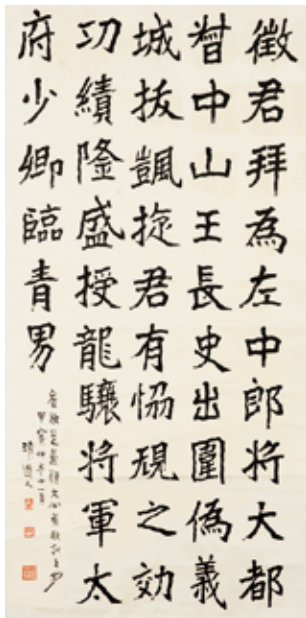 徵君拜為左中郎將大都
督中山王長史出圍偽義
城拔颽旋君有協規之効
功績隆盛授龍驤將軍太
府少卿臨青男
甲寅仲冬
清道人